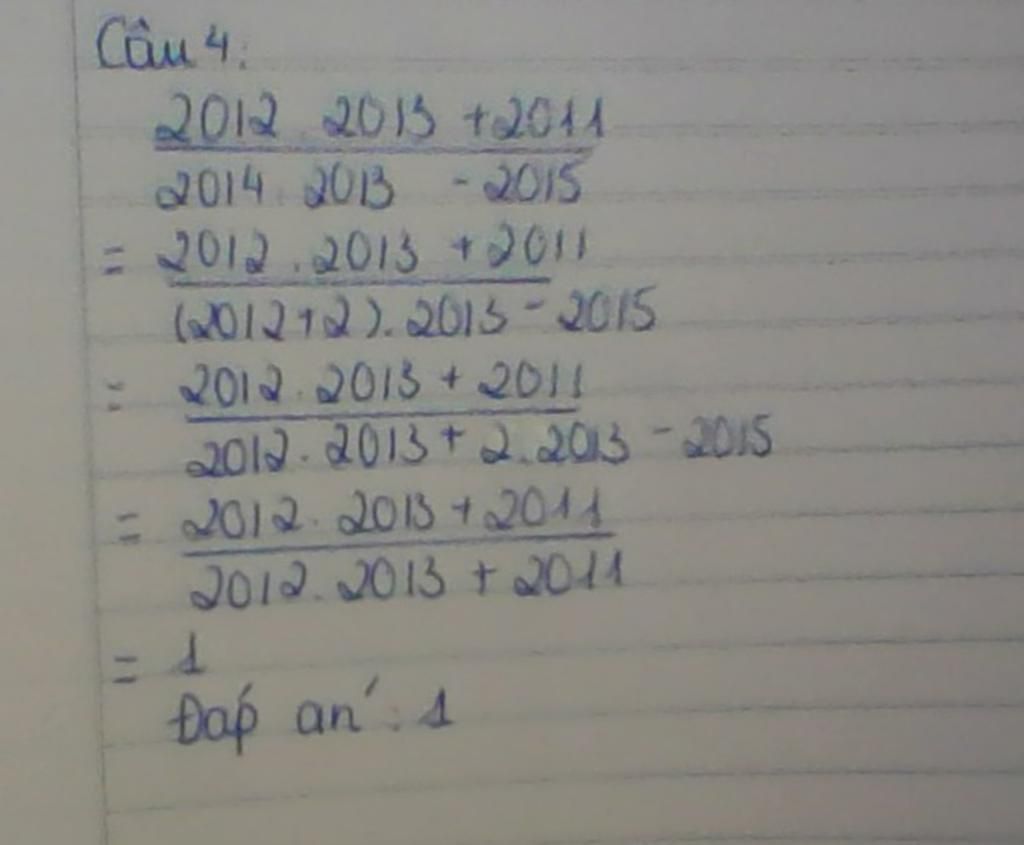 Câu 4:
2012 2013 +2011
2014. 2013 - 2015
= 2012 . 2013 + 2011
(2012+2). 2013 - 2015
= 2012. 2013 + 2011
2012. 2013 + 2. 2013 - 2015
= 2012. 2013 + 2011
2012. 2013 + 2011
= 1
Đáp án: 1